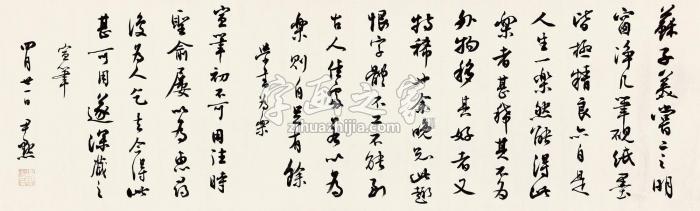 蘇子美嘗言明
窗淨几筆硯紙墨
皆極精良亦自是
人生一樂然能得此
樂者甚稀其不為
外物移其好者又
特稀也余晚知此趣
恨字體不工不能到
古人佳處若以為
樂則自足有餘
學書為樂
宣筆初不可用往時
聖俞屢以為惠尋
復為人乞去今得此
甚可用遂深藏之
宣筆
四月廿一日 尹默
字画之家
zihuazhijia.com